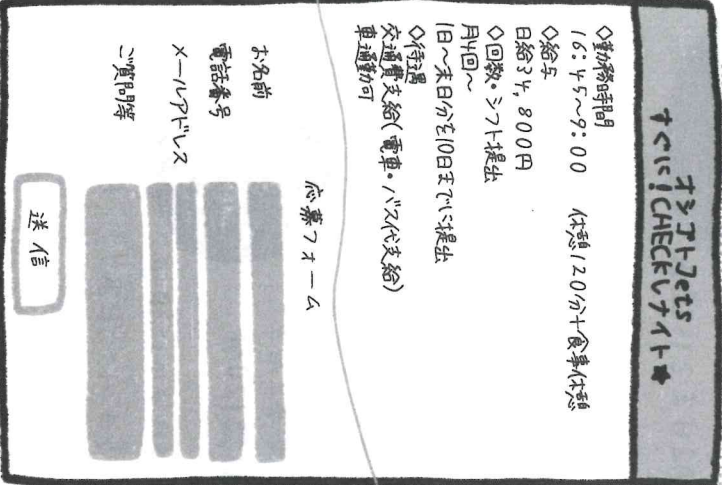 オシゴトJets
すぐに!CHECKしナイト★
◇勤務時間
16:45~9:00 休憩120分+食事休憩
◇給与
日給34,800円
◇回数・シフト提出
月4回~
1日~末日分を10日までに提出
◇待遇
交通費支給(電車・バス代支給)
車通勤可
応募フォーム
お名前
電話番号
メールアドレス
ご質問等
送信